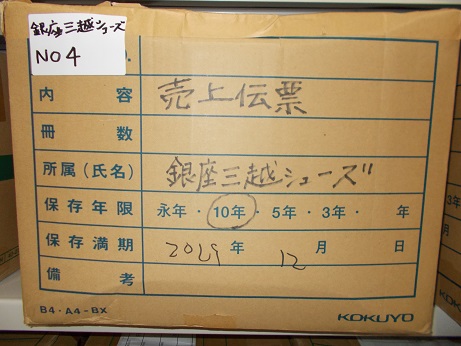 銀座三越シューズ
NO 4
O.
内容 売上伝票
冊数
所属(氏名) 銀座三越シューズ
保存年限 永年・10年・5年・3年・ 年
保存満期 2029年 12月 日
備考
B4・A4-BX KOKUYO